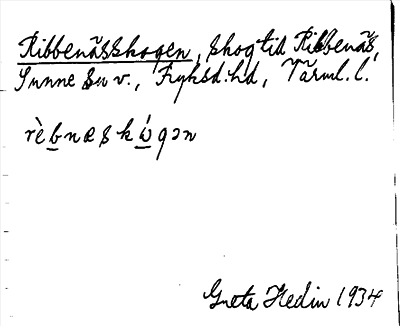 Ribbenässkogen, skog till Ribbenäs,
Sunne sn v., Fryksd. hd, Värml. l.
rèb̲næskẃ̲gən
Greta Hedin 1934